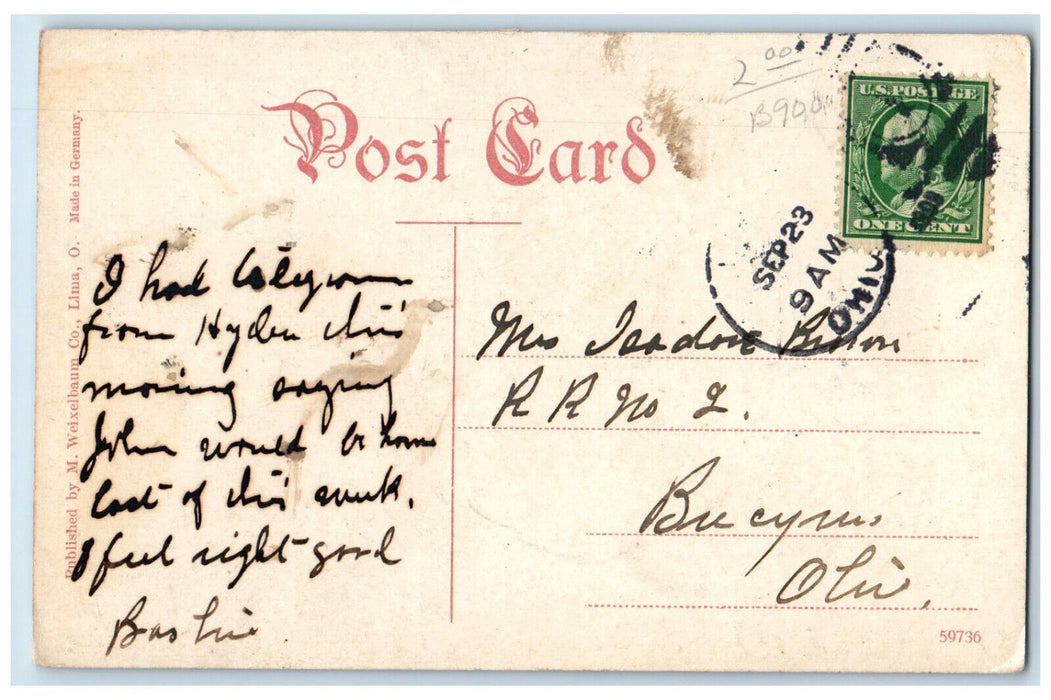 Post Card
Published by M. Weixelbaum Co., Lima, O. Made in Germany.
2 00
B900
U.S. POSTAGE
ONE CENT
SEP 23
9 AM
OHIO
I had telegram
from Hyden this
morning saying
John would be home
last of this week.
I feel right good
Mrs Isadore
R R No 2.
Bucyrus
Ohio.
59736